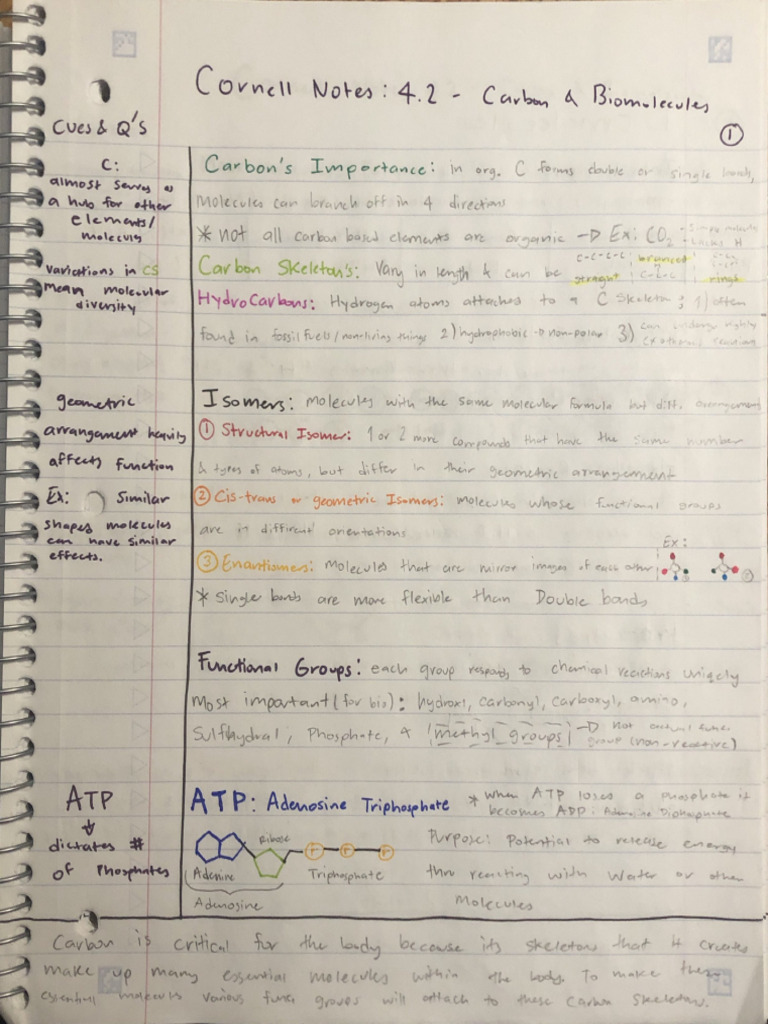 Cornell Notes: 4.2 - Carbon & Biomolecules
①
Cues & Q's
C:
almost serves as
a hub for other
elements/
molecules
variations in CS
mean molecular
diversity
Carbon's Importance: in org. C forms double or single bonds,
Molecules can branch off in 4 directions
* not all carbon based elements are organic → Ex: CO2 - Simple molecule
- Lacks H
Carbon Skeleton's: Vary in length & can be C-C-C-C straight branced C-C-C rings
HydroCarbons: Hydrogen atoms attached to a C Skeleton; 1) often
found in fossil fuels/non-living things 2) hydrophobic → non-polar 3) can undergo highly
exothermic reaction
geometric
arrangement heavily
affects function
Ex: Similar
shapes molecules
can have similar
effects.
Isomers: molecules with the same molecular formula but diff. arrangements
① Structural Isomer: 1 or 2 more compounds that have the same number
& types of atoms, but differ in their geometric arrangement
② Cis-trans or geometric Isomers: molecules whose functional groups
are in different orientations
Ex:
③ Enantiomers: Molecules that are mirror images of each other
* Single bonds are more flexible than Double bonds
Functional Groups: each group responds to chemical reactions uniquely
Most important (for bio): hydroxl, carbonyl, carboxyl, amino,
Sulfhydral, Phosphate, & methyl groups → Not actual func.
group (non-reactive)
ATP
↓
dictates #
of Phosphates
ATP: Adenosine Triphosphate * when ATP loses a phosphate it
becomes ADP: Adenosine Diphosphate
Ribose
P P P
Adenine
Triphosphate
Adenosine
Purpose: Potential to release energy
thru reacting with water or other
Molecules
Carbon is critical for the body because its skeletons that it creates
make up many essential molecules within the body. To make these
essential molecules various func. groups will attach to these Carbon Skeletons.